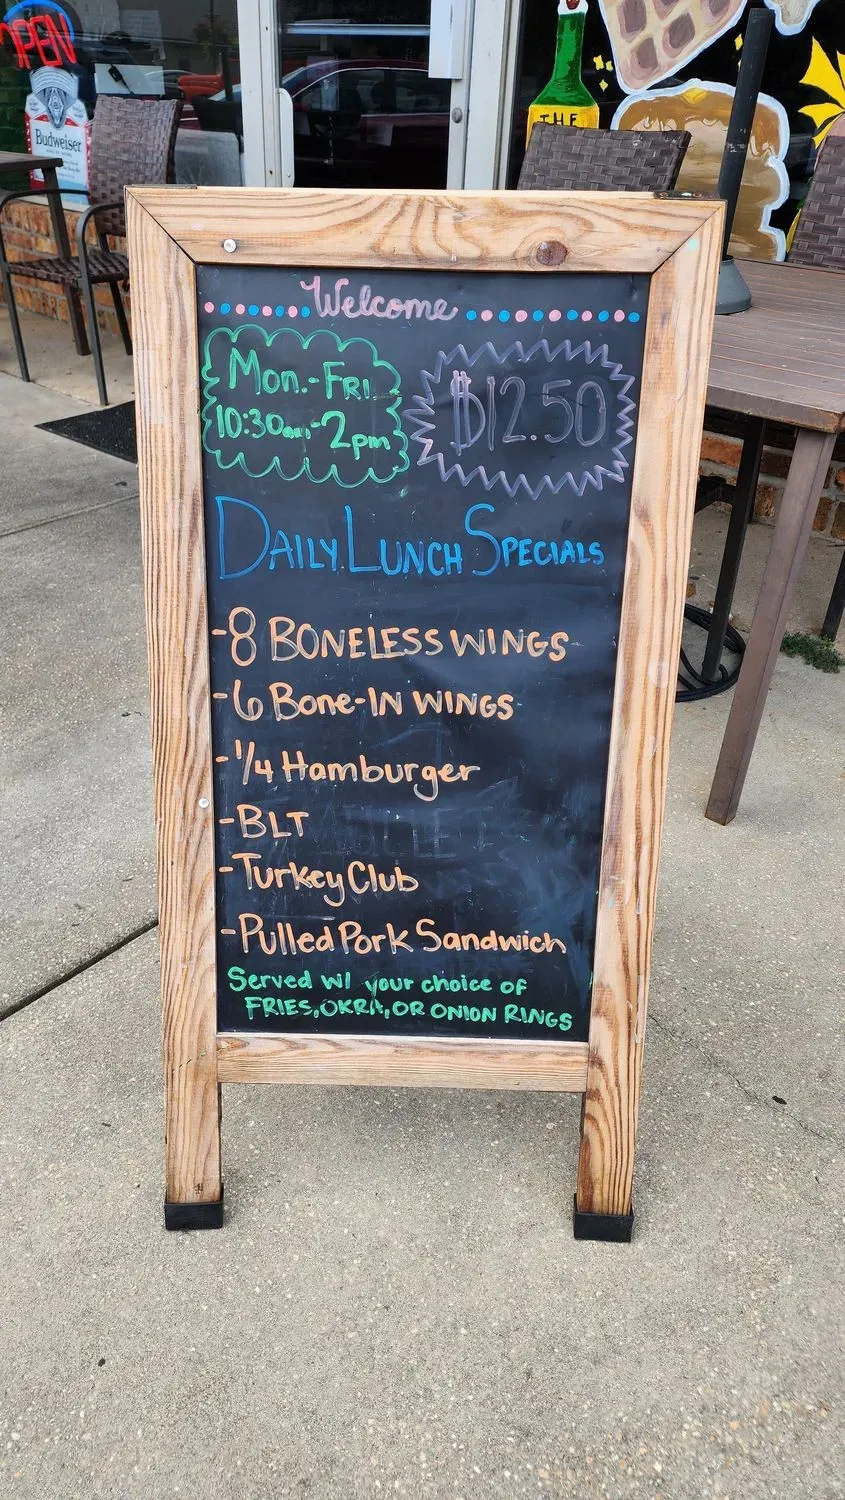 OPEN
Budweiser
THE
Welcome
Mon.-FRI
10:30am-2pm
$12.50
DAILY LUNCH SPECIALS
-8 BONELESS WINGS
-6 Bone-IN WINGS
-1/4 Hamburger
-BLT
-Turkey Club
-Pulled Pork Sandwich
Served w/ your choice of
FRIES, OKRA, OR ONION RINGS